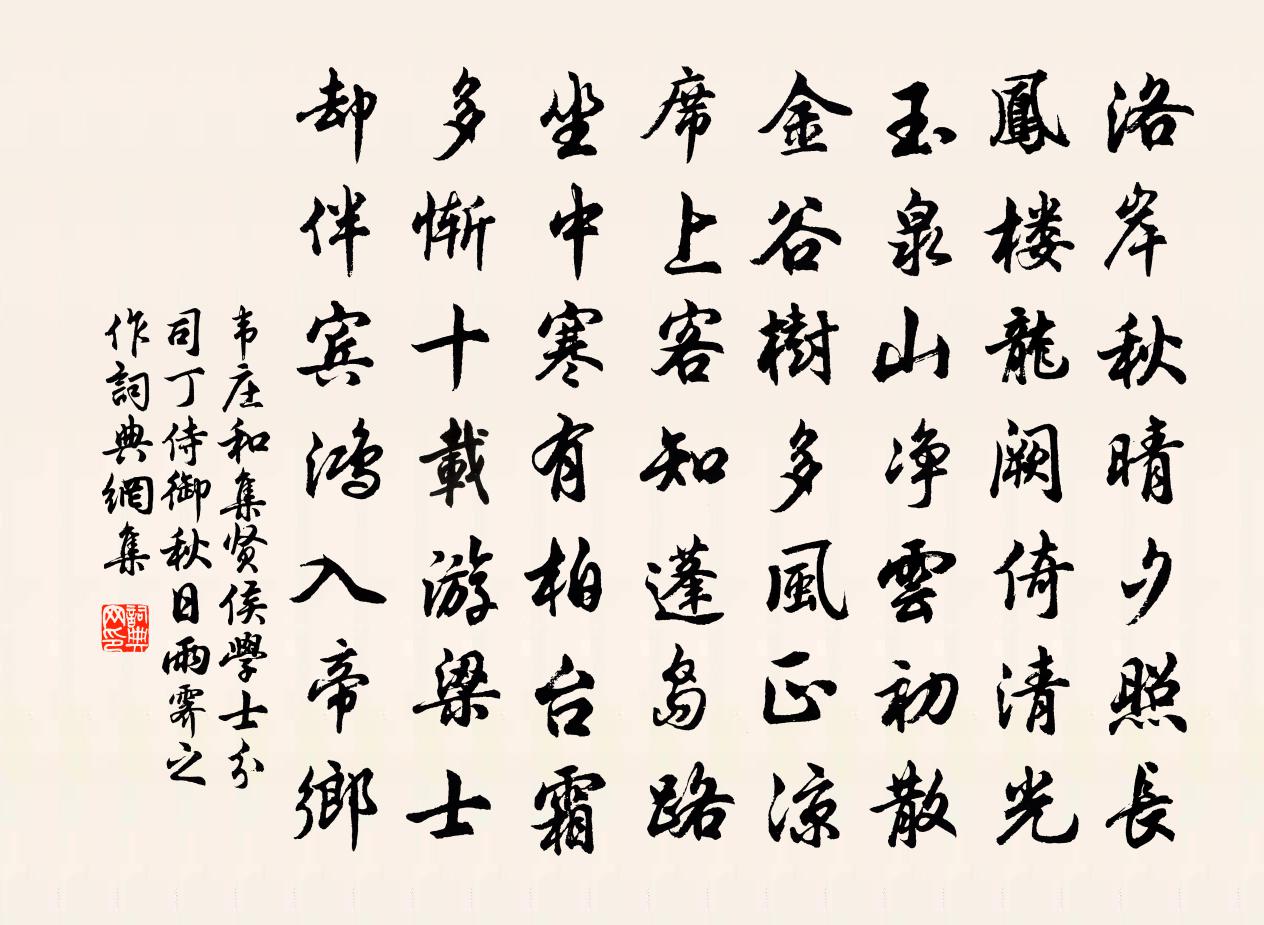 洛岸秋晴夕照長
鳳楼龍阙倚清光
玉泉山净雲初散
金谷樹多風正涼
席上客知蓬岛路
坐中寒有柏台霜
多慚十載游梁士
却伴宾鸿入帝鄉
韦庄和集贤侯學士分
司丁侍御秋日雨霽之
作詞典網集
詞典网印